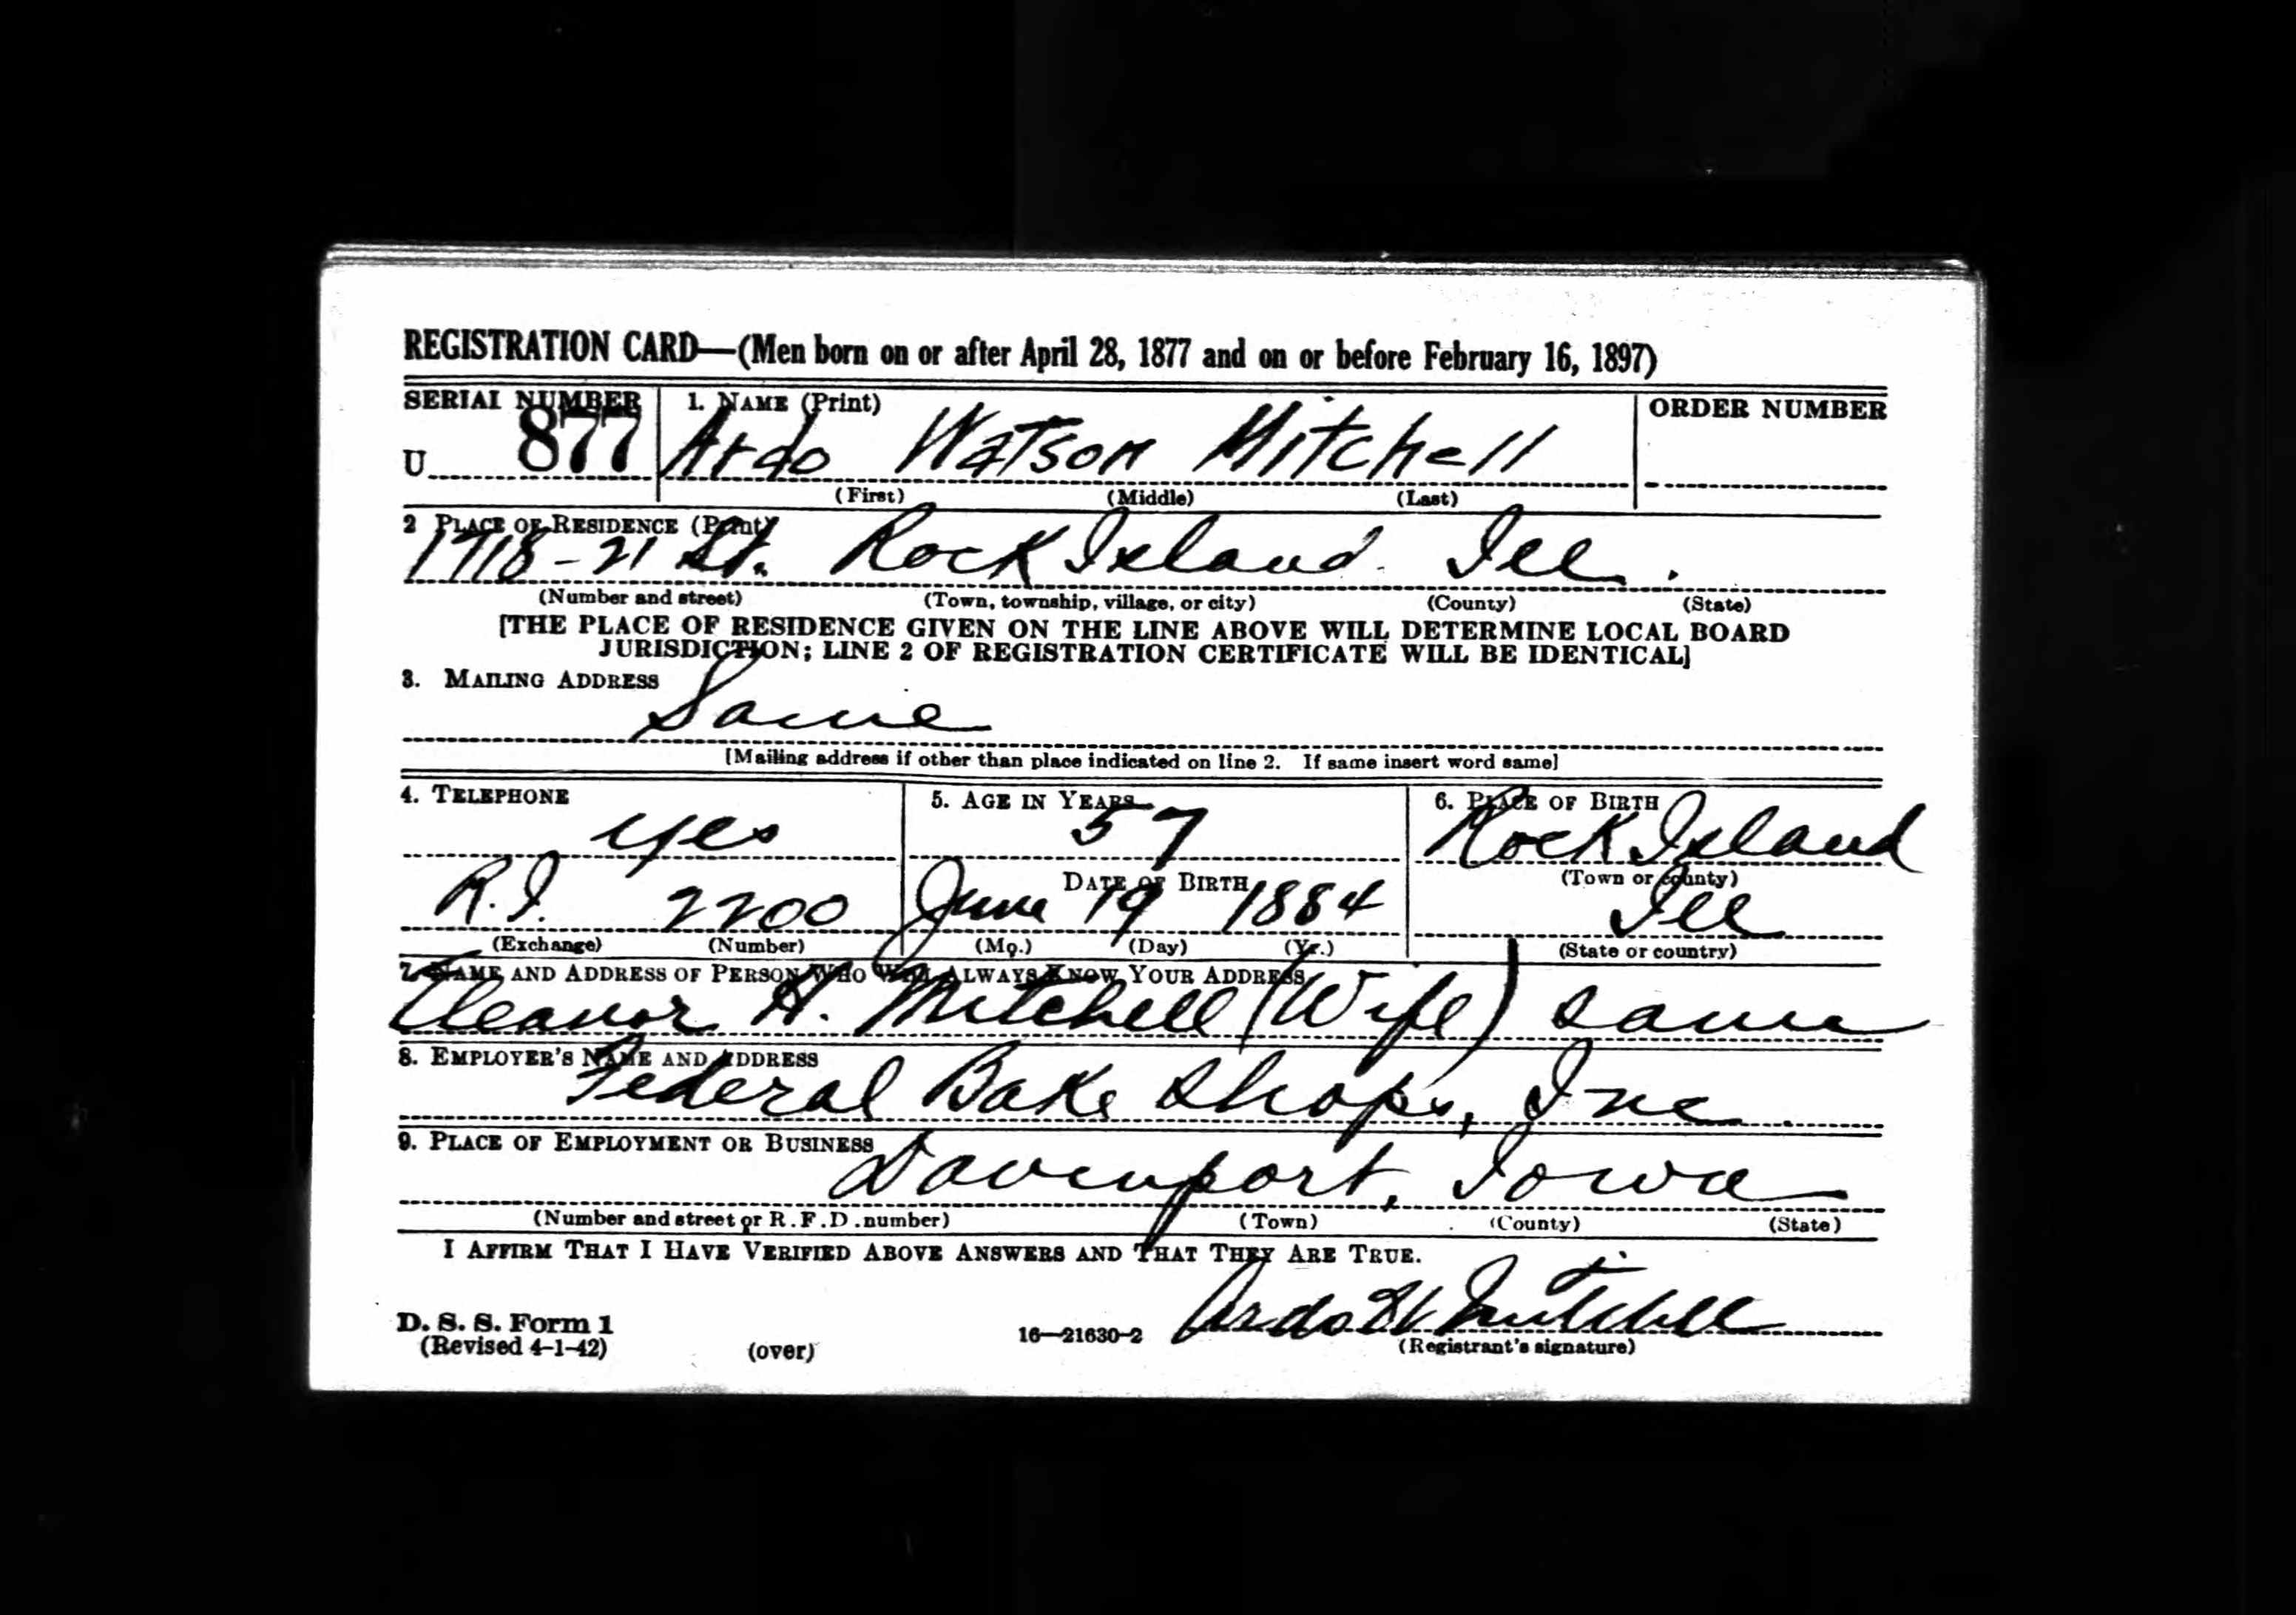 REGISTRATION CARD—(Men born on or after April 28, 1877 and on or before February 16, 1897)
SERIAL NUMBER 1. NAME (Print) ORDER NUMBER
U 877 Ardo Watson Mitchell
(First) (Middle) (Last)
2 PLACE OF RESIDENCE (Print)
1718-21 St. Rock Island Ill.
(Number and street) (Town, township, village, or city) (County) (State)
[THE PLACE OF RESIDENCE GIVEN ON THE LINE ABOVE WILL DETERMINE LOCAL BOARD
JURISDICTION; LINE 2 OF REGISTRATION CERTIFICATE WILL BE IDENTICAL]
3. MAILING ADDRESS
Same
[Mailing address if other than place indicated on line 2. If same insert word same]
4. TELEPHONE 5. AGE IN YEARS 6. PLACE OF BIRTH
yes 57 Rock Island
DATE OF BIRTH (Town or county)
R.I. 2200 June 19 1884 Ill
(Exchange) (Number) (Mo.) (Day) (Yr.) (State or country)
7. NAME AND ADDRESS OF PERSON WHO WILL ALWAYS KNOW YOUR ADDRESS
Eleanor H. Mitchell (Wife) same
8. EMPLOYER'S NAME AND ADDRESS
Federal Bake Shops, Inc.
9. PLACE OF EMPLOYMENT OR BUSINESS
Davenport, Iowa
(Number and street or R.F.D. number) (Town) (County) (State)
I AFFIRM THAT I HAVE VERIFIED ABOVE ANSWERS AND THAT THEY ARE TRUE.
Ardo W Mitchell
D. S. S. Form 1
(Revised 4-1-42) (over) 16—21630-2 (Registrant's signature)